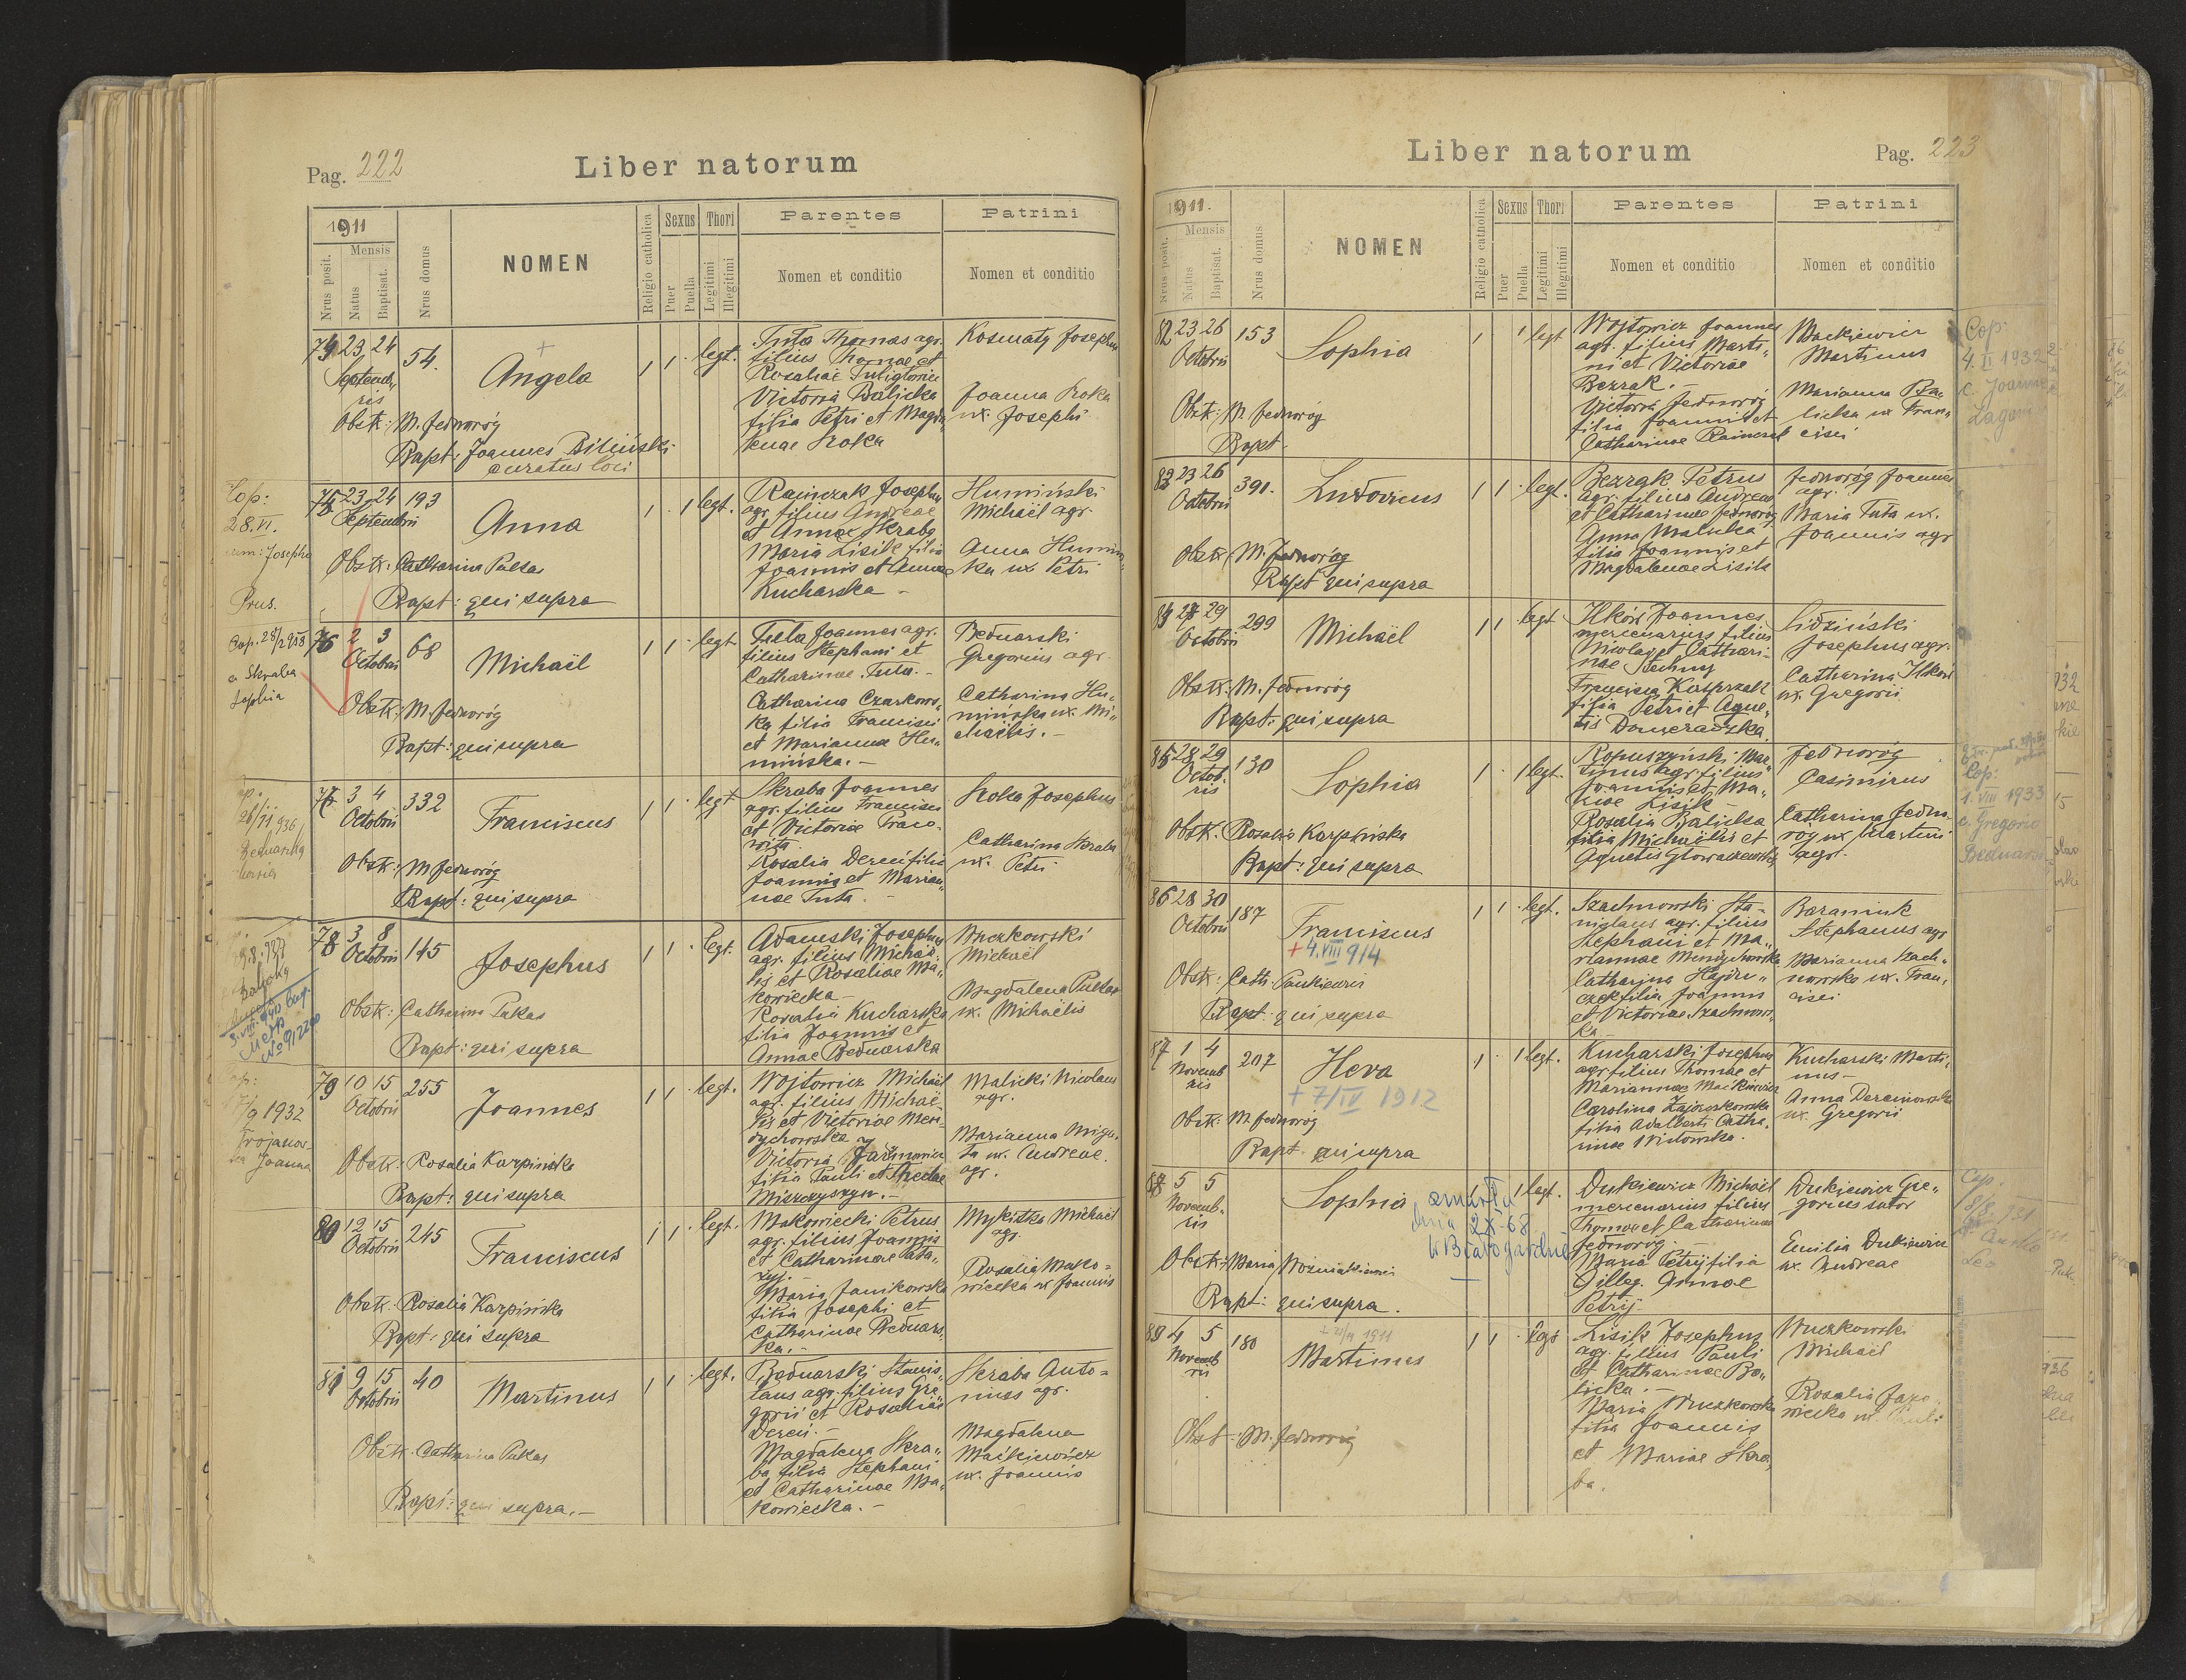 Pag. 222
Liber natorum
1911
Mensis
Nrus posit.
Natus
Baptisat.
Nrus domus
NOMEN
Religio catholica
Sexus
Puer
Puella
Thori
Legitimi
Illegitimi
Parentes
Nomen et conditio
Patrini
Nomen et conditio
74 23 24 54.
Septemb-
ris
Angela
1 1 legt.
Tuta Thomas agr.
filius Thomae et
Rosaliae
Victoria Balicka
filia Petri et Magda-
lenae Sroka
Kosmaty Josephus
Joanna Sroka
ux. Josephi
Obstr: M. Jednoróg
Bapt: Joannes Biliński
curatus loci
Cop:
28.VI.
cum: Josepho
Prus.
75 23 24 193
Septembris
Anna
1 1 legt.
Rainczak Josephus
agr. filius Andreae
et Annae Skraba
Maria Lisik filia
Joannis et Annae
Kucharska -
Humiński
Michaël agr.
Anna Humińs-
ka ux Petri
Obstr: Catharina Pukas
Bapt: qui supra
Cop. 28/2 958
a Skraba
Sophia
76 2 3 68
Octobris
Michaël
1 1 legt
Tuta Joannes agr.
filius Stephani et
Catharinae Tuta. -
Catharina Czarkows-
ka filia Francisci
et Mariannae Hu-
mińska. -
Bednarski
Gregorius agr.
Catharina Hu-
mińska ux. Mi-
chaëlis. -
Obstr: M. Jednoróg
Bapt: qui supra
26/11 936
Bednarska
Maria
77 3 4 332
Octobris
Franciscus
1 1 legt
Skraba Joannes
agr. filius Francisci
et Victoriae Praco-
wita.
Rosalia Dereń filia
Joannis et Marian-
nae Tuta. -
Sroka Josephus
Catharina Skraba
ux. Petri
Obstr: M Jednoróg
Bapt: qui supra
78 3 8 145
Octobris
Josephus
1 1 legt.
Adamski Josephus
agr. filius Michaë-
lis et Rosaliae Ma-
kowiecka -
Rosalia Kucharska
filia Joannis et
Annae Bednarska
Wuczkowski
Michaël
Magdalena Pukas
ux. Michaëlis
Obstr: Catharina Pukas
Bapt: qui supra
7/9 1932
Joanna
79 10 15 255
Octobris
Joannes
1 1 legt.
Wojtowicz Michaël
agr. filius Michaë-
lis et Victoriae Men-
dychowska
Victoria Jaźmowicz
filia Pauli et Theclae
Miszczyszyn. -
Malicki Nicolaus
agr.
Marianna Migu-
ta ux. Andreae
agr.
Obstr: Rosalia Karpińska
Bapt: qui supra
80 12 15 245
Octobris
Franciscus
1 1 legt.
Makowiecki Petrus
agr. filius Joannis
et Catharinae
Maria Janikowska
filia Josephi et
Catharinae Bednars-
ka. -
Mykitka Michaël
agr.
Rosalia Mako-
wiecka ux Joannis
Obstr: Rosalia Karpińska
Bapt: qui supra
81 9 15 40
Octobris
Martinus
1 1 legt.
Bednarski Stanis-
laus agr. filius Gre-
gorii et Rosaliae
Dereń. -
Magdalena Skra-
ba filia Stephani
et Catharinae Ma-
kowiecka. -
Skraba Anto-
nius agr.
Magdalena
Maćkiewicz
ux. Joannis
Obstr: Catharina Pukas
Bapt: qui supra. -
Liber natorum
Pag. 223
1911.
Mensis
Nrus posit.
Natus
Baptisat.
Nrus domus
NOMEN
Religio catholica
Sexus
Puer
Puella
Thori
Legitimi
Illegitimi
Parentes
Nomen et conditio
Patrini
Nomen et conditio
82 23 26 153
Octobris
Sophia
1 1 legt
Wojtowicz Joannes
agr. filius Marti-
ni et Victoriae
Bezrak. -
Victoria Jednoróg
filia Joannis et
Catharinae Rainczak
Maćkiewicz
Martinus
Marianna Ba-
licka ux Fran-
cisci
Obstr: M. Jednoróg
Bapt -
Cop:
4. II 1932
c. Joanne
83 23 26 391.
Octobris
Ludovicus
1 1 legt.
Bezrak Petrus
agr. filius Andreae
et Catharinae Jednoróg
Anna Malicka
filia Joannis et
Magdalenae Lisik
Jednoróg Joannes
agr.
Maria Tuta ux.
Joannis agr
Obstr: M. Jednoróg
Bapt qui supra
84 27 29 299
Octobris
Michaël
1 1 legt
Ilków Joannes
mercenarius filius
Nicolai et Cathari-
nae
Francisca Kasprzak
filia Petri et Agne-
tis Domeradzka.
Lidziński
Josephus agr.
Catharina Ilków
ux. Gregorii
Obstr: M. Jednoróg
Bapt: qui supra
85 28 29 130
Octob-
ris
Sophia
1 1 legt.
Kopuszyński Max-
imus agr. filius
Joannis et Ma-
riae Lisik -
Rosalia Balicka
filia Michaëlis et
Agnetis
Jednoróg
Casimirus
Catharina Jedno-
róg ux. Martini
agr.
Obstr: Rosalia Karpińska
Bapt: qui supra
Cop:
1. VIII 1933
c. Gregorio
Bednarski
86 28 30 187
Octobris
Franciscus
+ 4.VIII 914
1 1 legt.
Szachnowski Sta-
nislaus agr. filius
Stephani et Ma-
riannae Mendychowska
Catharina Hajdu-
czek filia Joannis
et Victoriae Szachnows-
ka
Baraniuk
Stephanus agr
Marianna Szach-
nowska ux. Fran-
cisci
Obstr: Cath. Pankiewicz
Bapt: qui supra
87 1 4 207
Novemb
ris
Heva
+ 7/IV 1912
1 1 legt.
Kucharski Josephus
agr. filius Thomae et
Mariannae Maćkiewicz
Carolina
filia Adalberti Catha-
rinae Witowska.
Kucharski Marti-
nus -
Anna Derenowska
ux. Gregorii
Obstr: M. Jednoróg
Bapt qui supra
88 5 5
Novemb-
ris
Sophia
zmarła
dnia 2X.68
w Białogardzie
1 legt.
Dukiewicz Michaël
mercenarius filius
Thomae et Catharinae
Jednoróg. -
Maria Petryj filia
illeg. Annae
Petryj.
Dukiewicz Gre-
gorius sutor
Emilia Dukiewicz
ux. Andreae
Obstr: Maria Woźniakiewicz
Bapt: qui supra.
Cop.
89 4 5 180
Novemb
ris
Martinus
1 1 legt
Lisik Josephus
agr. filius Pauli
et Catharinae Ba-
licka. -
Maria Wuczkowska
filia Joannis
et Mariae Skra-
ba.
Wuczkowski
Michaël
Rosalia
Obst: M. Jednoróg